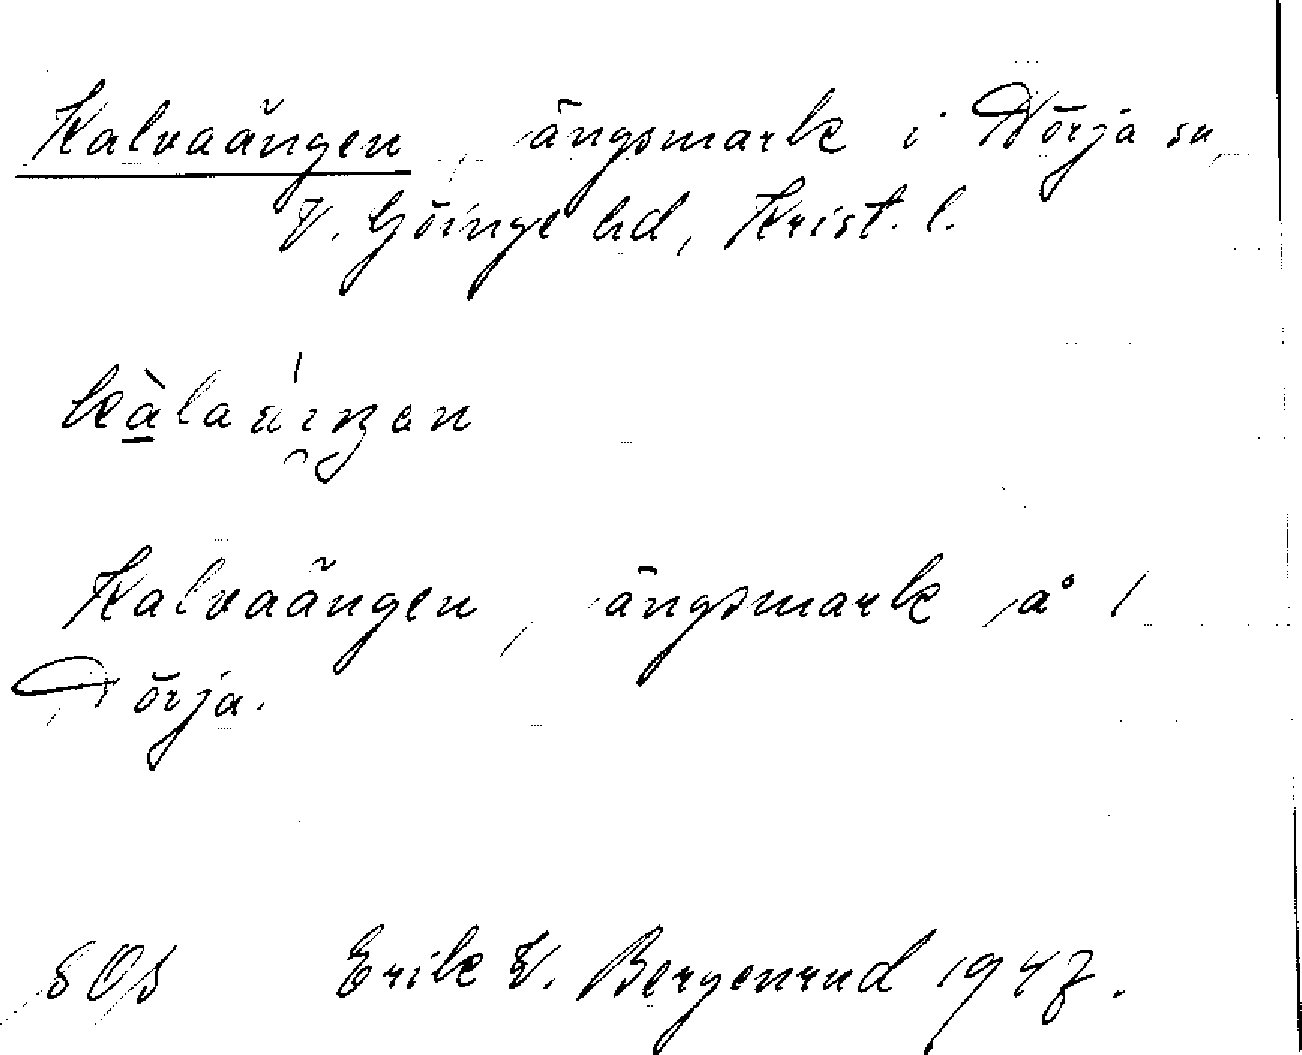 Kalvaängen, ängsmark i Nörja sn,
V. Göinge hd, Krist. l.
Kalvaängen, ängsmark å 1
Törja.
SOS Erik V. Bergenrud 1947.